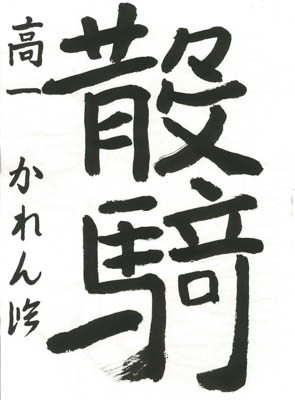 散騎
高一 かれん臨